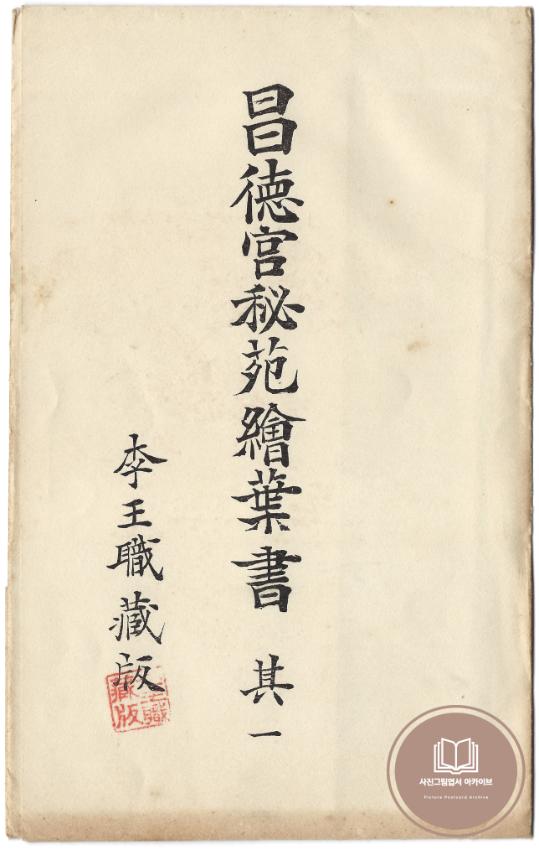 昌徳宮秘苑繪葉書 其一
李王職藏版
李王職
藏版
사진그림엽서 아카이브
Picture Postcard Archive